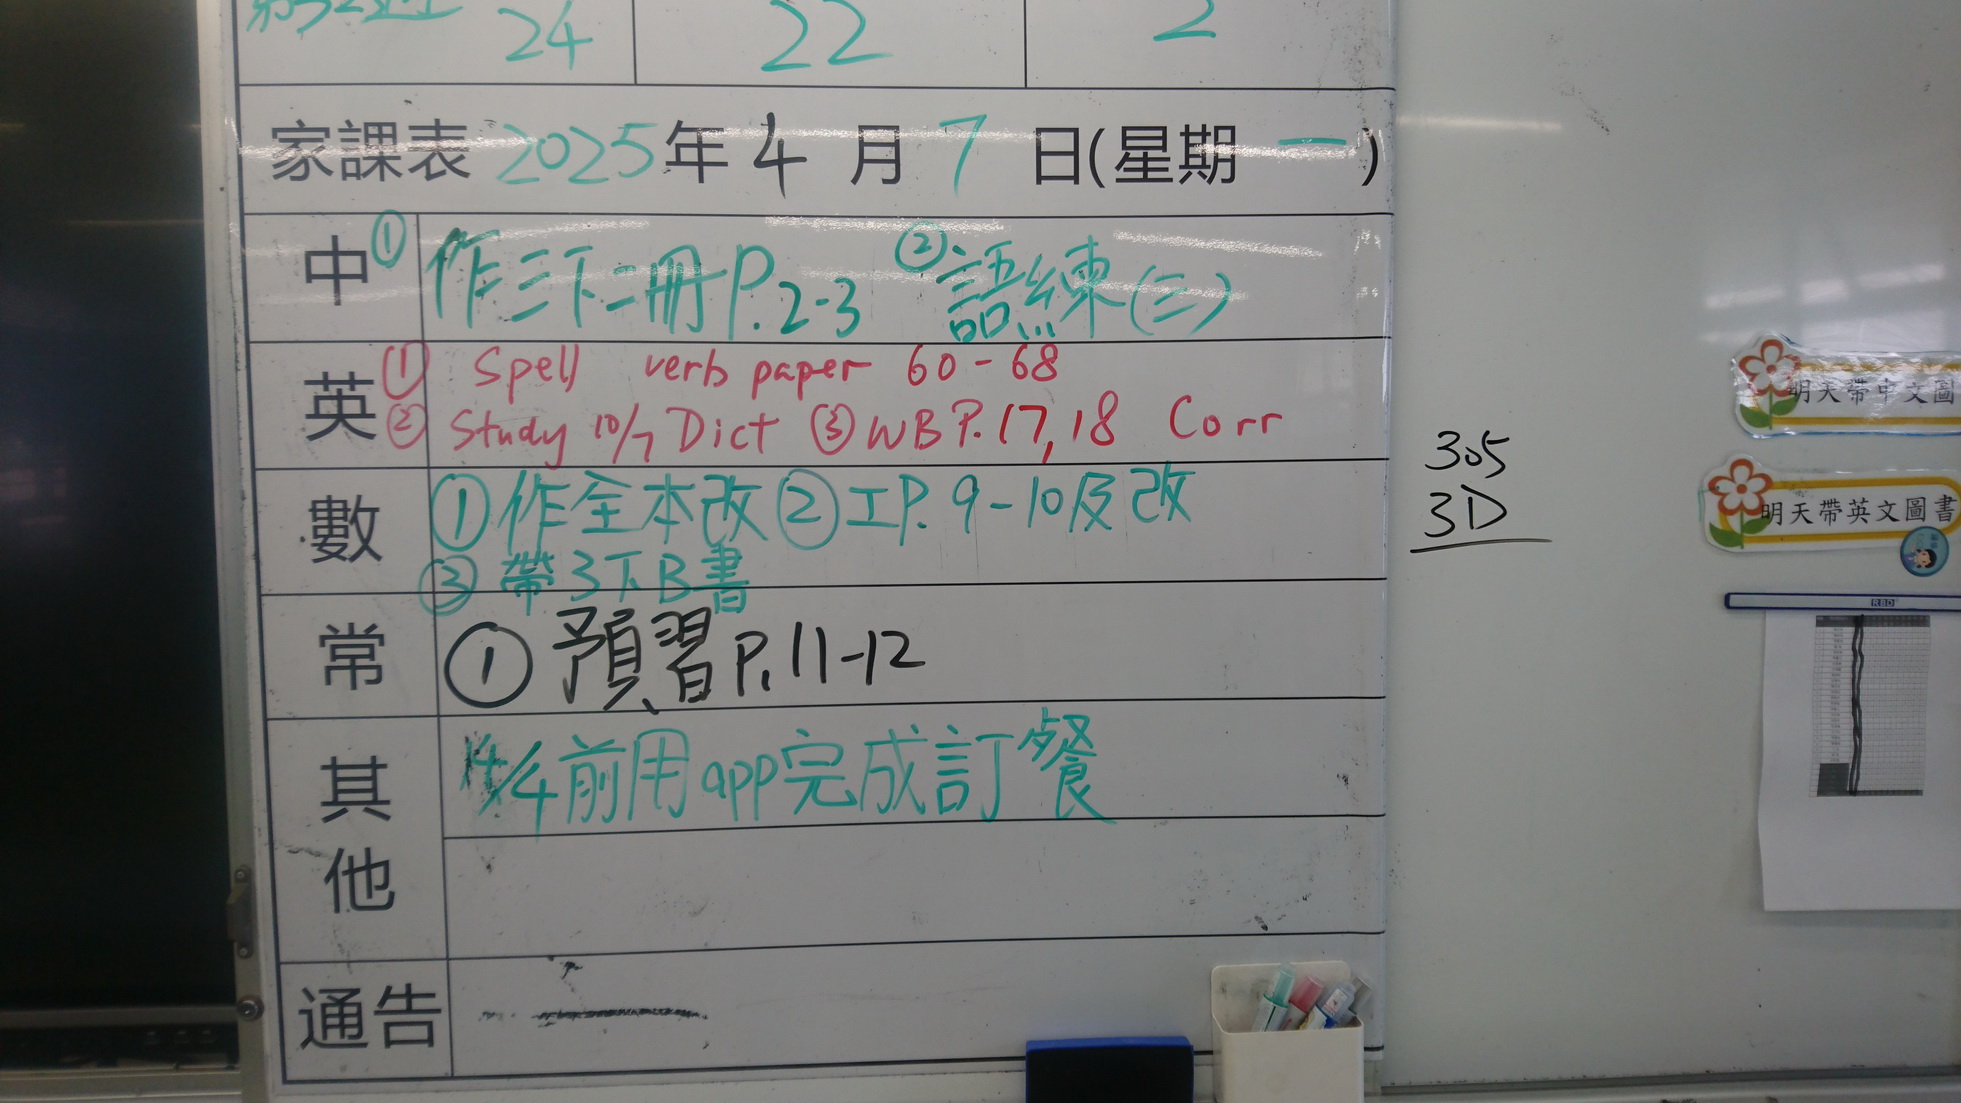 24 22 2
家課表 2025年 4 月 7 日(星期 一 )
中 ① 作三下二冊 P.2-3 ② 語練(三)
英 ① Spell verb paper 60-68
② Study 10/7 Dict ③ WB P.17,18 Corr
數 ① 作全本改 ② 工P.9-10及改
③ 帶3下B書
常 ① 預習 P.11-12
其他 14/4前用app完成訂餐
通告
305
3D
明天帶中文圖
明天帶英文圖書